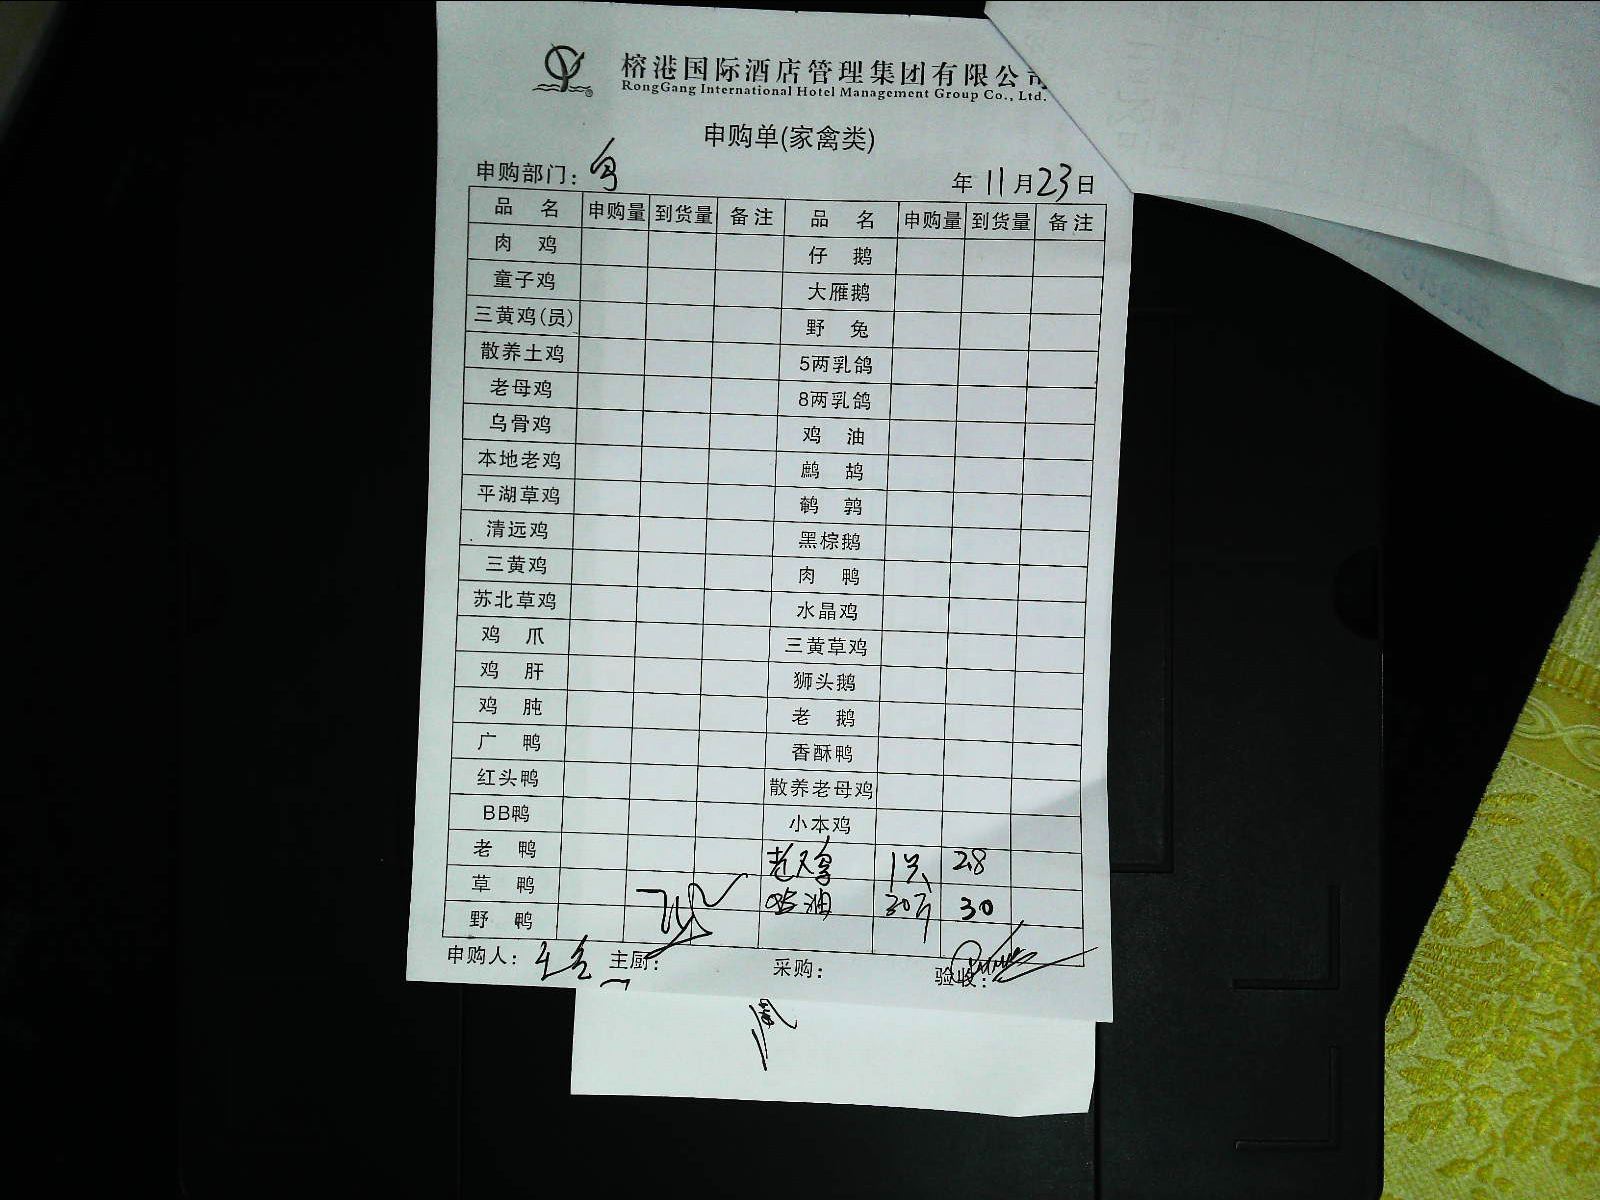 榕港国际酒店管理集团有限公司
RongGang International Hotel Management Group Co., Ltd.
申购单(家禽类)
申购部门： 年 11 月 23 日
品 名 申购量 到货量 备注 品 名 申购量 到货量 备注
肉 鸡 仔 鹅
童子鸡 大雁鹅
三黄鸡(员) 野 兔
散养土鸡 5两乳鸽
老母鸡 8两乳鸽
乌骨鸡 鸡 油
本地老鸡 鹧 鸪
平湖草鸡 鹌 鹑
清远鸡 黑棕鹅
三黄鸡 肉 鸭
苏北草鸡 水晶鸡
鸡 爪 三黄草鸡
鸡 肝 狮头鹅
鸡 肫 老 鹅
广 鸭 香酥鸭
红头鸭 散养老母鸡
BB鸭 小本鸡
老 鸭 老鸡 1只 2.8
草 鸭 鸡油 30斤 30
野 鸭
申购人： 主厨： 采购： 验收：